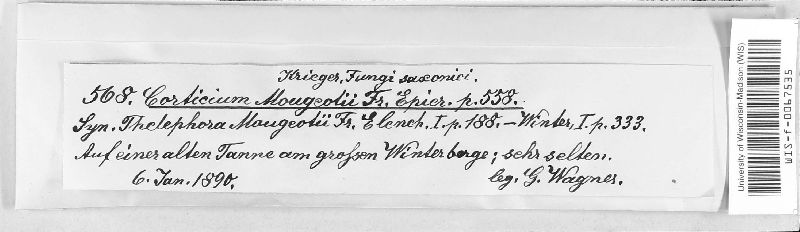 Krieger, Fungi saxonici.
568. Corticium Mougeotii Fr. Epicr. p. 558.
Syn. Thelephora Mougeotii Fr. Elench. I. p. 188. – Winter, I. p. 333.
Auf einer alten Tanne am grossen Winterberge; sehr selten.
6. Jan. 1890.
leg. G. Wagner.
University of Wisconsin-Madison (WIS)
WIS-f-0067535